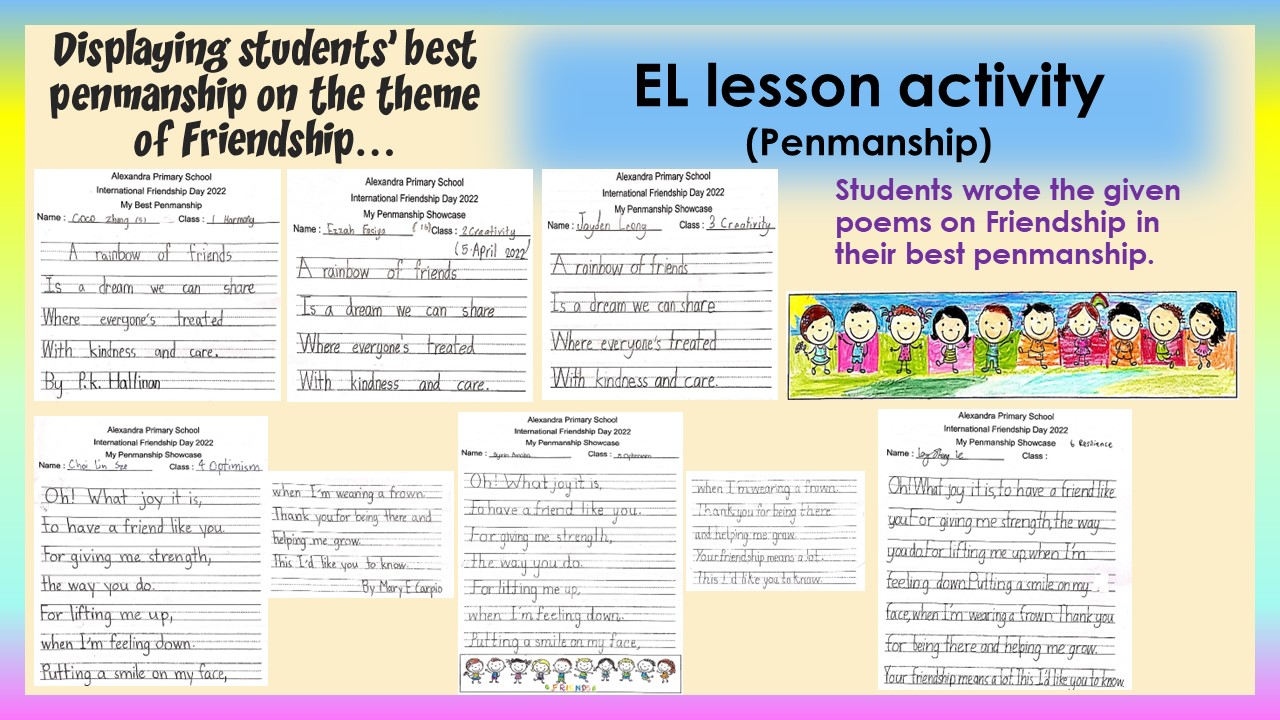 Displaying students’ best
penmanship on the theme
of Friendship...
EL lesson activity
(Penmanship)
Students wrote the given
poems on Friendship in
their best penmanship.
Alexandra Primary School
International Friendship Day 2022
My Best Penmanship
Name : Coco Zhang (5) Class : 1 Harmony
A rainbow of friends
Is a dream we can share
Where everyone's treated
With kindness and care.
By P.k. Hallinan
Alexandra Primary School
International Friendship Day 2022
My Penmanship Showcase
Name : Ezzah Class : 2 Creativity
(5 April 2022)
A rainbow of friends
Is a dream we can share
Where everyone's treated
With kindness and care.
Alexandra Primary School
International Friendship Day 2022
My Penmanship Showcase
Name : Jayden Leong Class : 3 Creativity
A rainbow of friends
Is a dream we can share
Where everyone's treated
With kindness and care.
Alexandra Primary School
International Friendship Day 2022
My Penmanship Showcase
Name : Choi Lin Sze Class : 4 Optimism
Oh! What joy it is,
to have a friend like you.
For giving me strength,
the way you do.
For lifting me up,
when I'm feeling down.
Putting a smile on my face,
when I'm wearing a frown.
Thank you for being there and
helping me grow.
This I'd like you to know.
By Mary E Carpio
Alexandra Primary School
International Friendship Day 2022
My Penmanship Showcase
Name : Class :
Oh! What joy it is,
To have a friend like you.
For giving me strength,
the way you do.
For lifting me up,
when I'm feeling down.
Putting a smile on my face,
FRIENDS
when I'm wearing a frown.
Thank you for being there
and helping me grow.
Your friendship means a lot.
This I'd like you to know.
Alexandra Primary School
International Friendship Day 2022
My Penmanship Showcase 6 Resilience
Name : Class :
Oh! What joy it is, to have a friend like
you.For giving me strength, the way
you do.For lifting me up, when I'm
feeling down.Putting a smile on my
face, when I'm wearing a frown. Thank you
for being there and helping me grow.
Your friendship means a lot. This I'd like you to know.